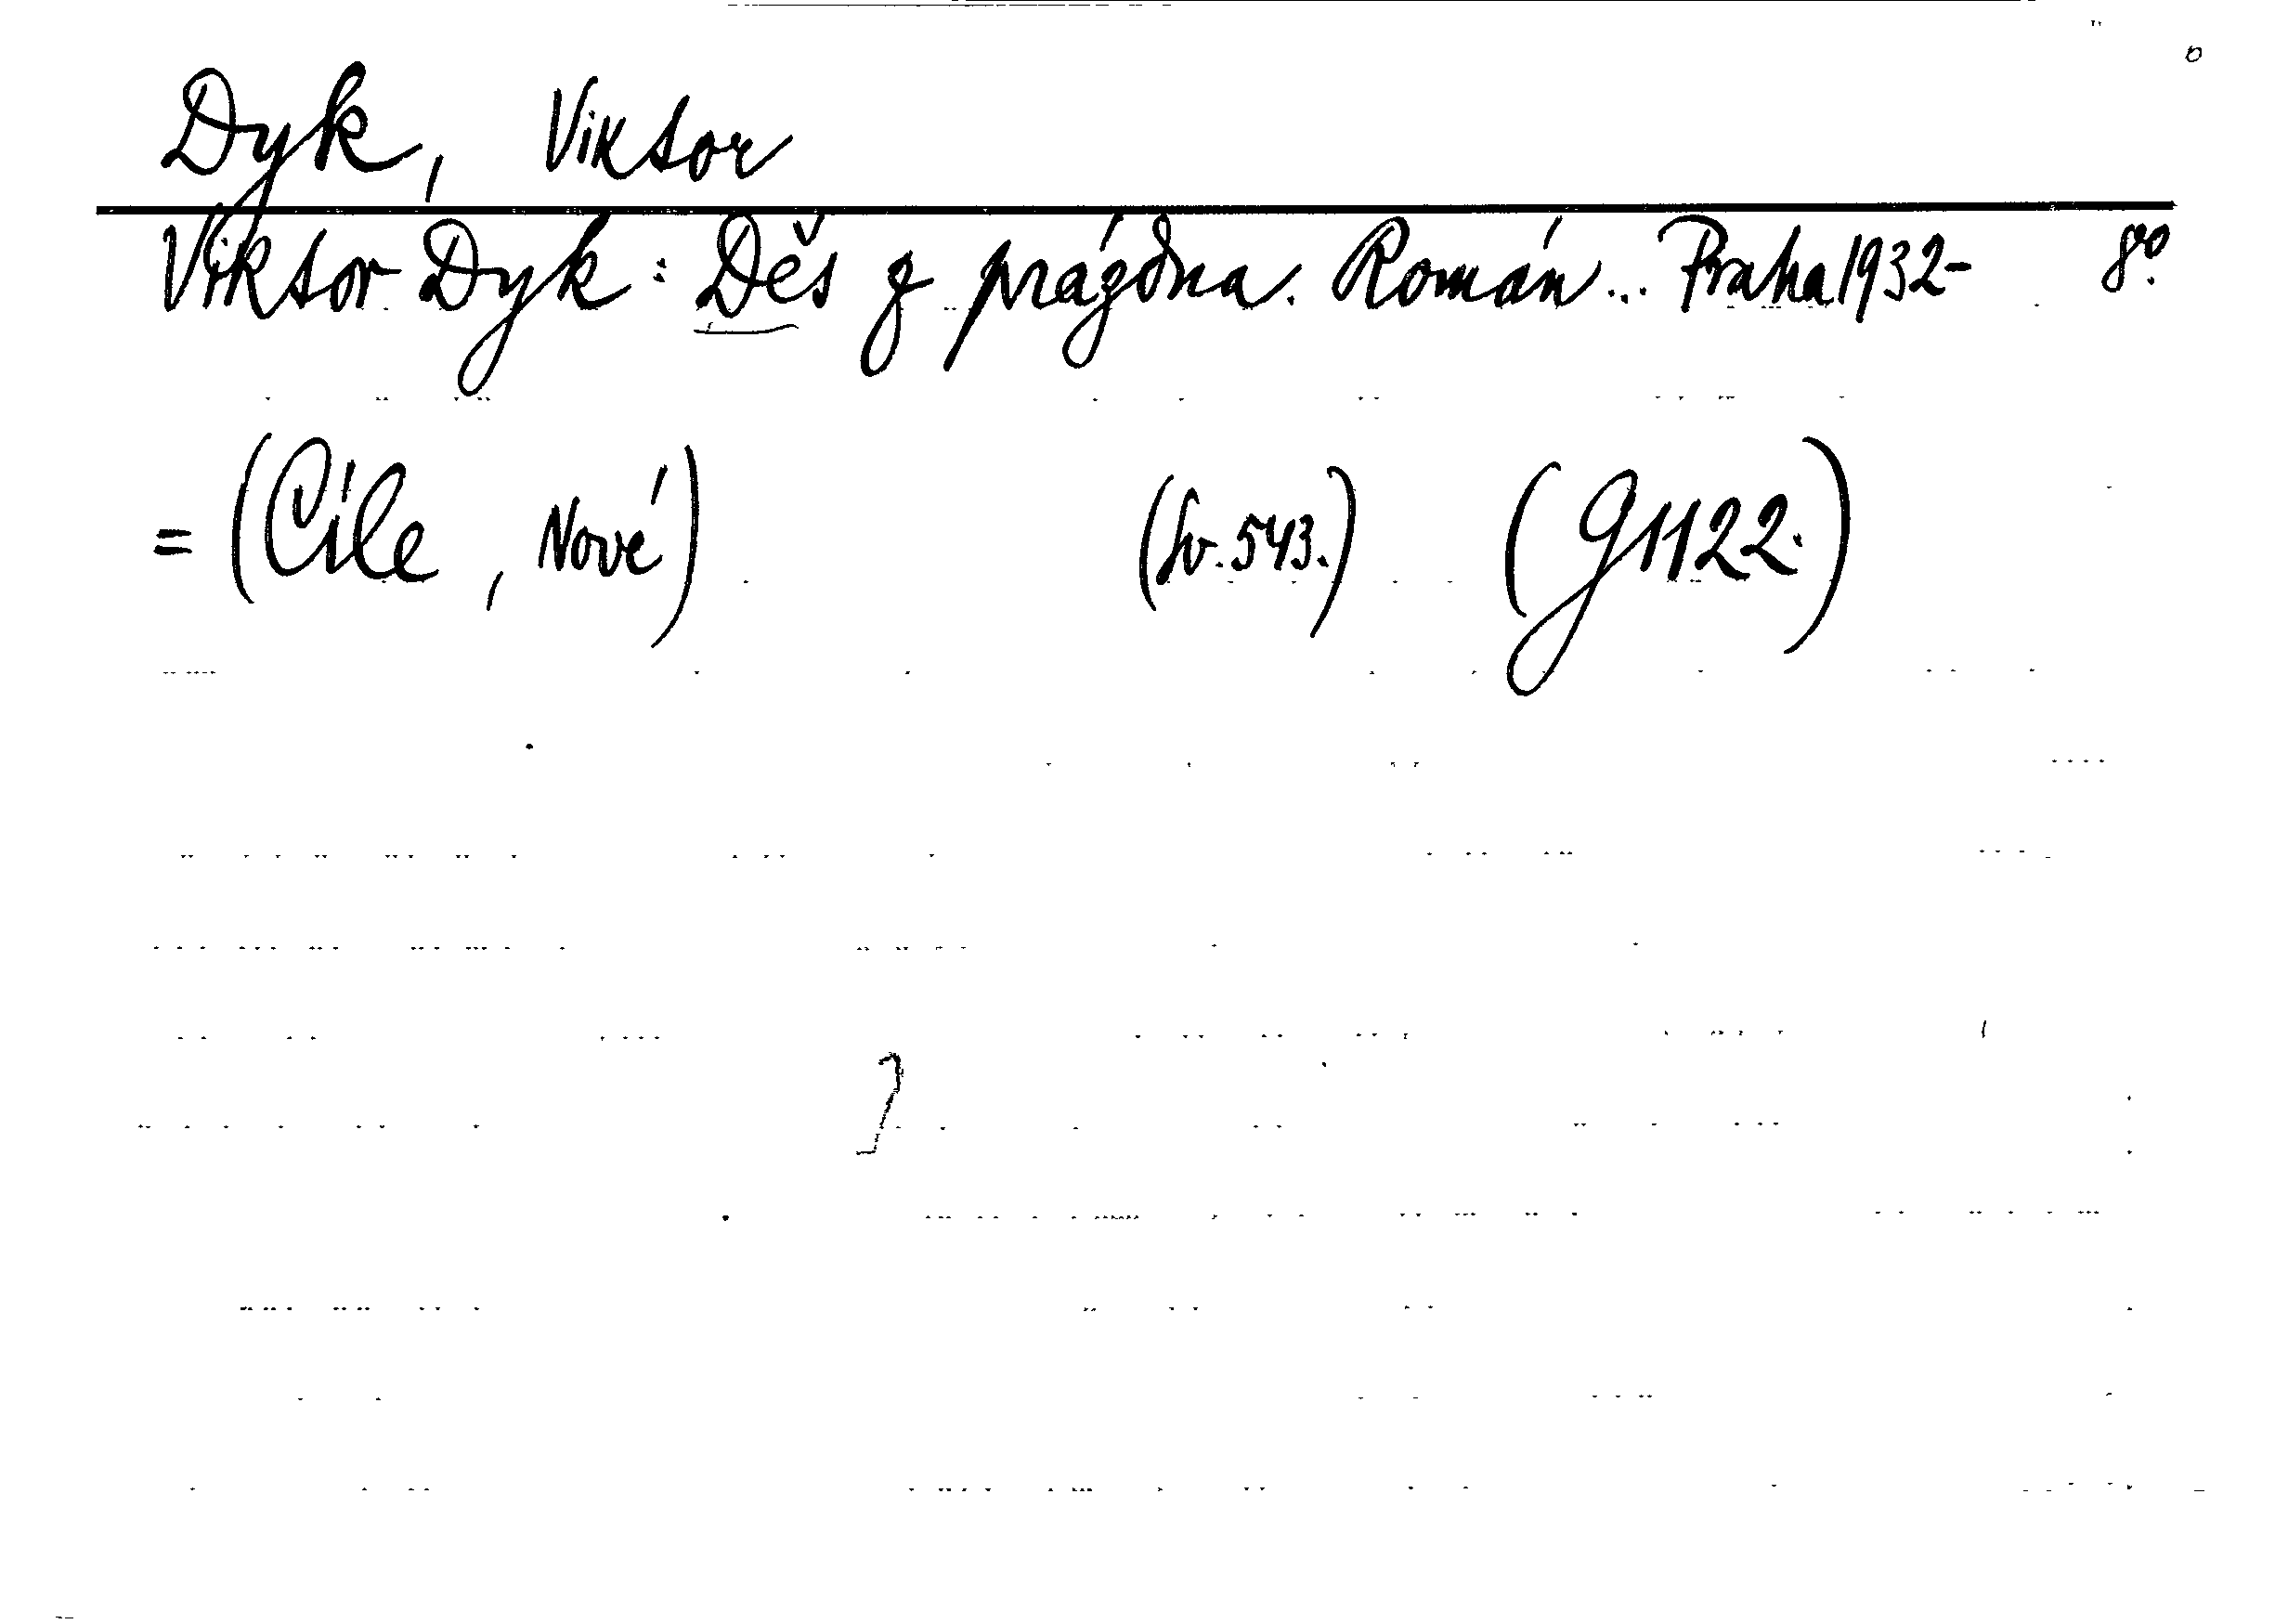 Dyk, Viktor
Viktor Dyk: Děs z prázdna. Román... Praha 1932- 8º.
= (Cíle, Nové) (Sv. 543.) (G 1122.)